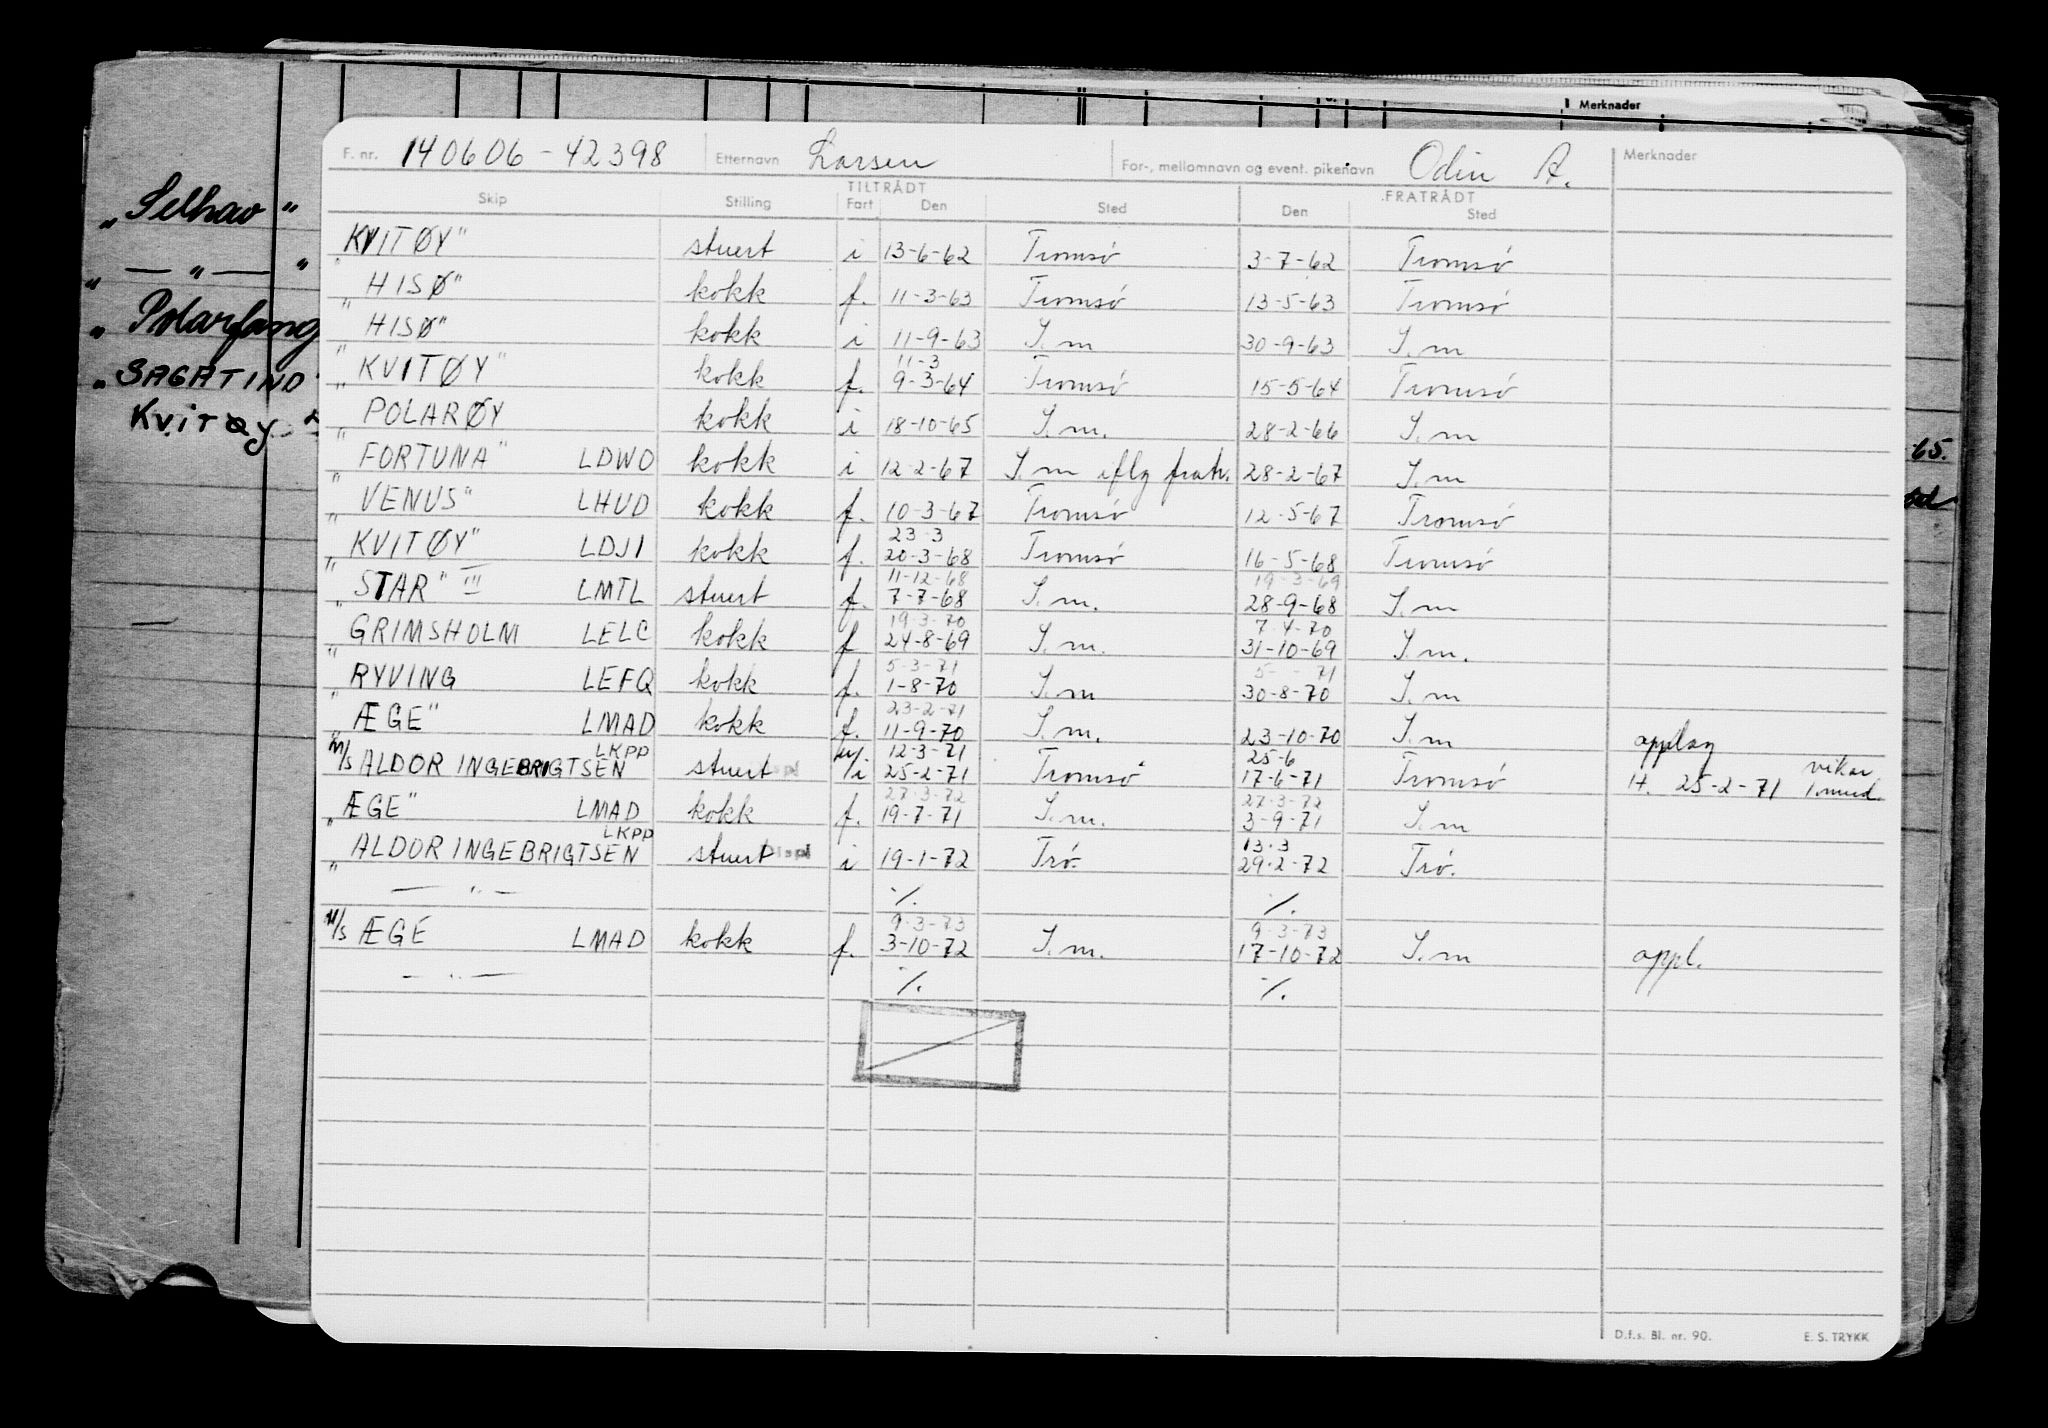 Merknader
F. nr. 140606-42398 Etternavn Larsen For-, mellomnavn og event. pikenavn Odin A. Merknader
TILTRÅDT FRATRÅDT
Skip Stilling Fart Den Sted Den Sted
"KVITØY" stuert i 13-6-62 Tromsø 3-7-62 Tromsø
"HISØ" kokk f. 11-3-63 Tromsø 13-5-63 Tromsø
"HISØ" kokk i 11-9-63 S.m 30-9-63 S.m
11-3
"KVITØY" kokk f. 9-3-64 Tromsø 15-5-64 Tromsø
"POLARØY kokk i 18-10-65 S.m. 28-2-66 S.m
"FORTUNA" LDWO kokk i 12-2-67 S.m iflg fratr. 28-2-67 S.m
"VENUS" LHUD kokk f. 10-3-67 Tromsø 12-5-67 Tromsø
23-3
"KVITØY" LDJI kokk f. 20-3-68 Tromsø 16-5-68 Tromsø
11-12-68 19-3-69
"STAR" III LMTL stuert f. 7-7-68 S.m. 28-9-68 S.m
19-3-70 7-4-70
"GRIMSHOLM LELC kokk f 24-8-69 S.m. 31-10-69 S.m.
5-3-71 5- -71
"RYVING LEFQ kokk f. 1-8-70 S.m 30-8-70 S.m
23-2-71
"ÆGE" LMAD kokk f. 11-9-70 S.m. 23-10-70 S.m opplag
LKPP 12-3-71 25-6 vikar
M/S ALDOR INGEBRIGTSEN stuert i 25-2-71 Tromsø 17-6-71 Tromsø H. 25-2-71 1 mnd.
27-3-72 27-3-72
"ÆGE" LMAD kokk f. 19-7-71 S.m. 3-9-71 S.m
LKPP 13-3
"ALDOR INGEBRIGTSEN stuert i 19-1-72 Trø. 29-2-72 Trø.
— " — ·/. ·/.
9-3-73 9-3-73
M/S ÆGE LMAD kokk f. 3-10-72 S.m. 17-10-72 S.m oppl.
— " — ·/. ·/.
D.f.s. Bl. nr. 90. E. S. TRYKK
"Selhav"
" — " — "
"Polarfang
"SAGATIND"
KVITØY
65.